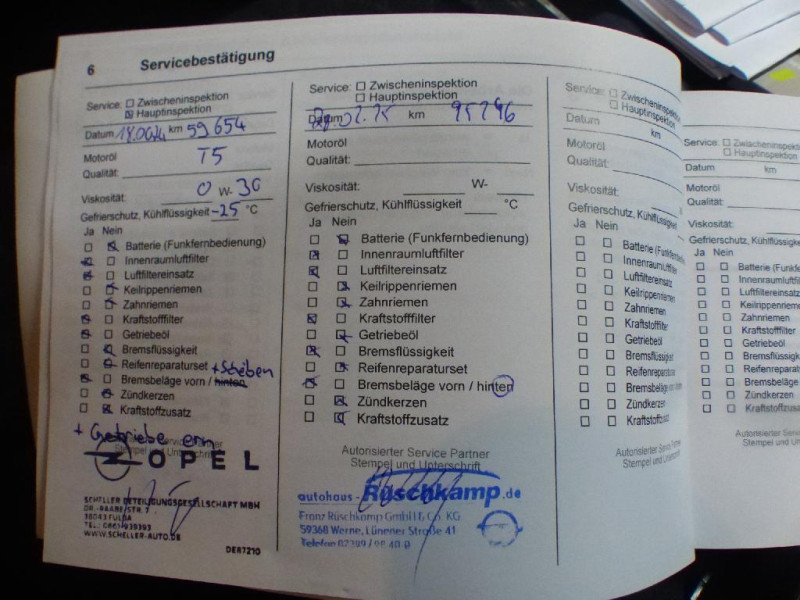 6 Servicebestätigung
Service: ☐ Zwischeninspektion
☒ Hauptinspektion
Datum km 59 654
Motoröl T5
Qualität:
Viskosität: 0 W- 30
Gefrierschutz, Kühlflüssigkeit -25 °C
Ja Nein
Batterie (Funkfernbedienung)
Innenraumluftfilter
Luftfiltereinsatz
Keilrippenriemen
Zahnriemen
Kraftstofffilter
Getriebeöl
Bremsflüssigkeit
Reifenreparaturset + Scheiben
Bremsbeläge vorn / hinten
Zündkerzen
Kraftstoffzusatz
+ Getriebe ern
OPEL
SCHELLER BETEILIGUNGSGESELLSCHAFT MBH
DR.-RAABE-STR. 7
36043 FULDA
WWW.SCHELLER-AUTO.DE
DE87210
Service: ☐ Zwischeninspektion
☐ Hauptinspektion
Datum km 95296
Motoröl
Qualität:
Viskosität: W-
Gefrierschutz, Kühlflüssigkeit °C
Ja Nein
Batterie (Funkfernbedienung)
Innenraumluftfilter
Luftfiltereinsatz
Keilrippenriemen
Zahnriemen
Kraftstofffilter
Getriebeöl
Bremsflüssigkeit
Reifenreparaturset
Bremsbeläge vorn / hinten
Zündkerzen
Kraftstoffzusatz
Autorisierter Service Partner
Stempel und Unterschrift
autohaus - Rüschkamp.de
Franz Rüschkamp GmbH & Co. KG
59368 Werne, Lünener Straße 41
Telefon 02389 / 98 40-0
Service: ☐ Zwischeninspektion
☐ Hauptinspektion
Datum km
Motoröl
Qualität:
Viskosität: W-
Gefrierschutz, Kühlflüssigkeit
Ja Nein
Batterie (Funkfernbedienung)
Innenraumluftfilter
Luftfiltereinsatz
Keilrippenriemen
Zahnriemen
Kraftstofffilter
Getriebeöl
Bremsflüssigkeit
Reifenreparaturset
Bremsbeläge vorn / hinten
Zündkerzen
Kraftstoffzusatz
Autorisierter Service
Stempel und Unterschrift
Service: ☐ Zwischeninspektion
☐ Hauptinspektion
Datum km
Motoröl
Qualität:
Viskosität:
Gefrierschutz, Kühlflüssigkeit
Ja Nein
Batterie
Innenraumluftfilter
Luftfiltereinsatz
Keilrippenriemen
Zahnriemen
Kraftstofffilter
Getriebeöl
Bremsflüssigkeit
Bremsbeläge
Zündkerzen
Autorisierter
Stempel und